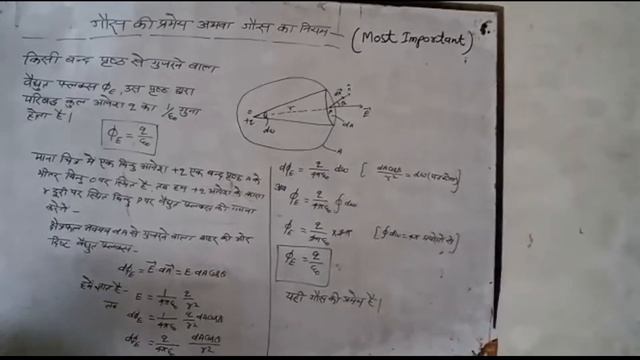 गौस की प्रमेय अथवा गौस का नियम - (Most Important)
किसी बन्द पृष्ठ से गुजरने वाला
वैद्युत फ्लक्स ϕE, उस पृष्ठ द्वारा
परिबद्ध कुल आवेश q का 1/ε₀ गुना
होता है।
ϕE = q/ε₀
माना चित्र में एक बिन्दु आवेश +q एक बन्द पृष्ठ A के
भीतर बिन्दु O पर स्थित है तब हम +q आवेश के कारण
r दूरी पर स्थित बिन्दु P पर वैद्युत फ्लक्स की गणना
करेंगे -
क्षेत्रफल अवयव dA से गुजरने वाला बाहर की ओर
वैद्युत फ्लक्स -
dϕE = E⃗ dA⃗ = E dA cosθ
हम जानते है -
E = 1/4πε₀ q/r²
तब
dϕE = 1/4πε₀ q/r² dA cosθ
dϕE = q/4πε₀ dA cosθ/r²
O
+q
dω
r
P
θ
E⃗
dA
A
dϕE = q/4πε₀ dω [ dA cosθ/r² = dω ]
ϕE = q/4πε₀ ∮ dω
ϕE = q/4πε₀ × 4π [ ∮ dω = 4π ]
ϕE = q/ε₀
यही गौस की प्रमेय है।